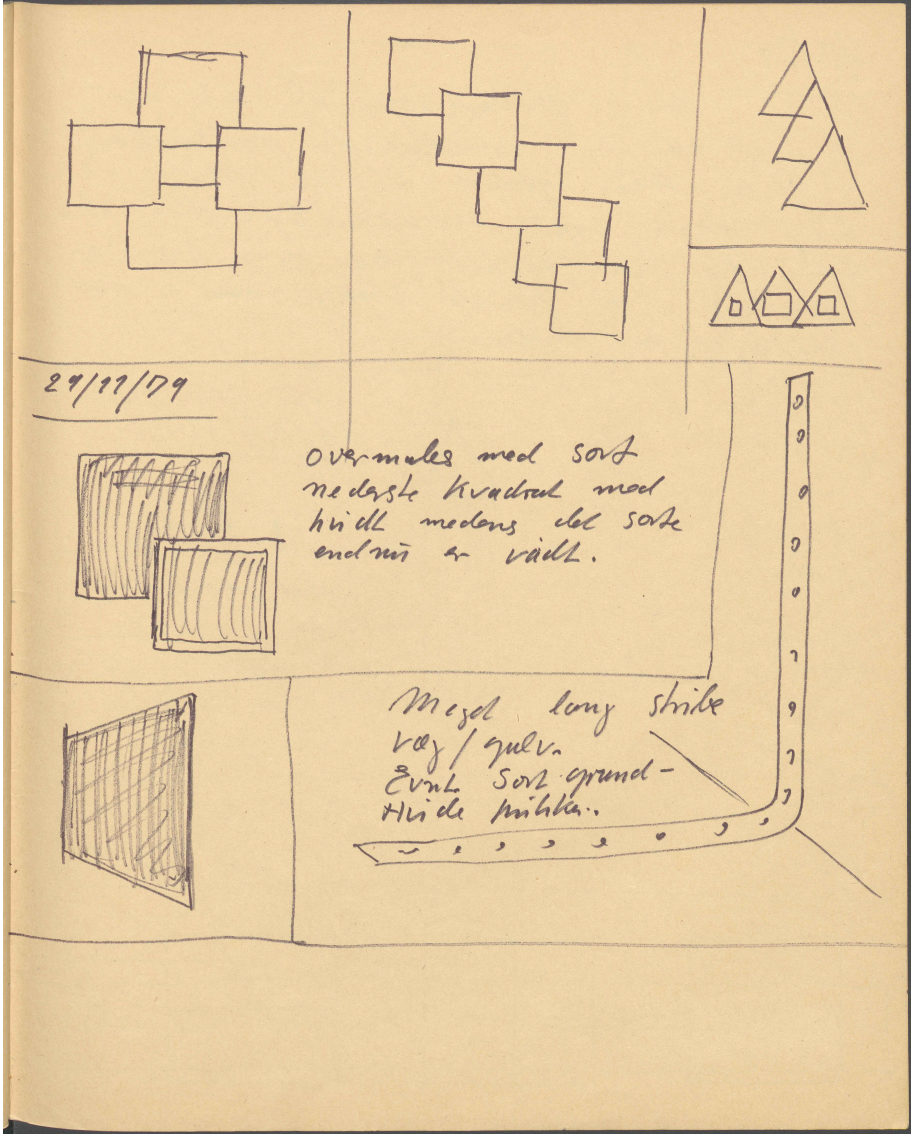 29/11/79
overmales med sort
nederste kvadrat med
hvidt medens det sorte
endnu er vådt.
Meget lang stribe
væg / gulv.
Evnt. Sort grund-
Hvide prikker..